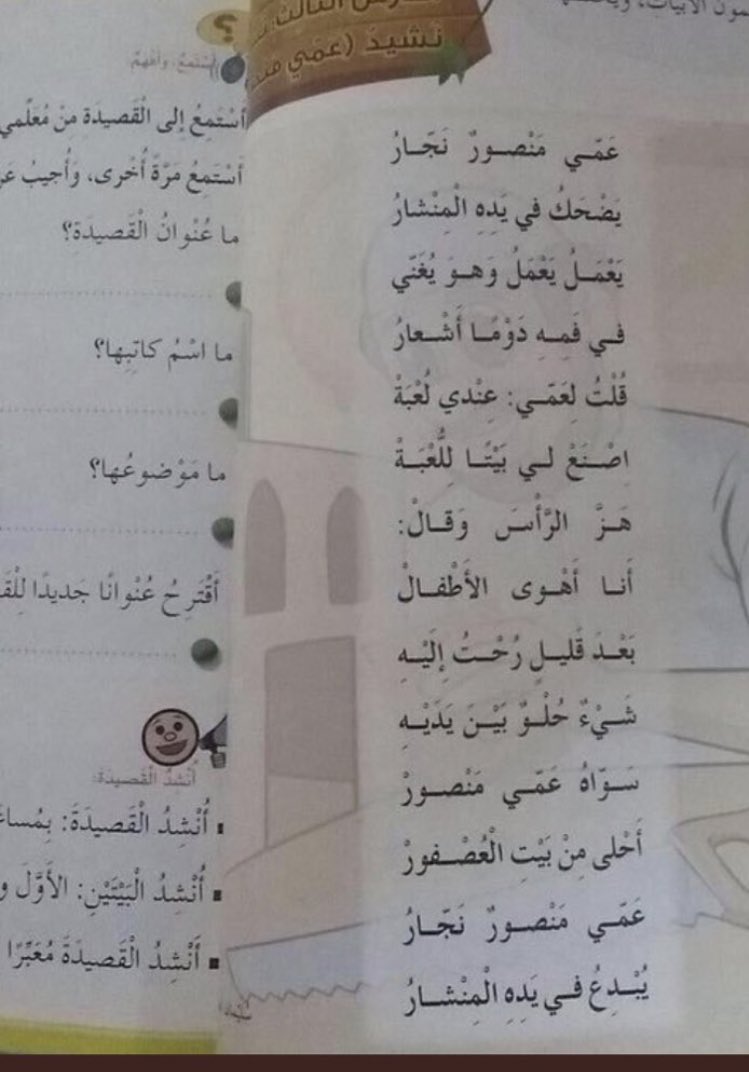 نَشيدُ (عَمّي
عَمّـي مَنْصـورٌ نَجّـارُ
يَضْحَكُ في يَدِهِ الْمِنْشارُ
يَعْمَـلُ يَعْمَلُ وَهـوَ يُغَنّي
فـي فَمِـهِ دَوْمًـا أَشْـعارُ
قُلْتُ لِعَمّـي: عِنْدي لُعْبَةْ
اِصْـنَعْ لـي بَيْتًـا لِلُّعْبَـةْ
هَـزَّ الرَّأْسَ وَقـالْ:
أَنـا أَهْـوى الأَطْفـالْ
بَعْـدَ قَليـلٍ رُحْـتُ إِلَيْـهِ
شَـيْءٌ حُلْـوٌ بَيْـنَ يَدَيْـهِ
سَـوّاهُ عَمّـي مَنْصـورْ
أَحْلى مِنْ بَيْتِ الْعُصْـفورْ
عَمّـي مَنْصـورٌ نَجّـارُ
يُبْـدِعُ فـي يَدِهِ الْمِنْشـارُ
؟
أَسْتَمِعُ، وَأَفْهَمُ:
أَسْتَمِعُ إِلى الْقَصيدَةِ مِنْ مُعَلِّمي
أَسْتَمِعُ مَرَّةً أُخْرى، وَأُجيبُ
ما عُنْوانُ الْقَصيدَةِ؟
ما اسْمُ كاتِبِها؟
ما مَوْضوعُها؟
أَقْتَرِحُ عُنْوانًا جَديدًا
أُنْشِدُ الْقَصيدَةَ:
▪ أُنْشِدُ الْقَصيدَةَ:
▪ أُنْشِدُ الْبَيْتَيْنِ: الأَوَّلَ
▪ أُنْشِدُ الْقَصيدَةَ مُعَبِّرًا